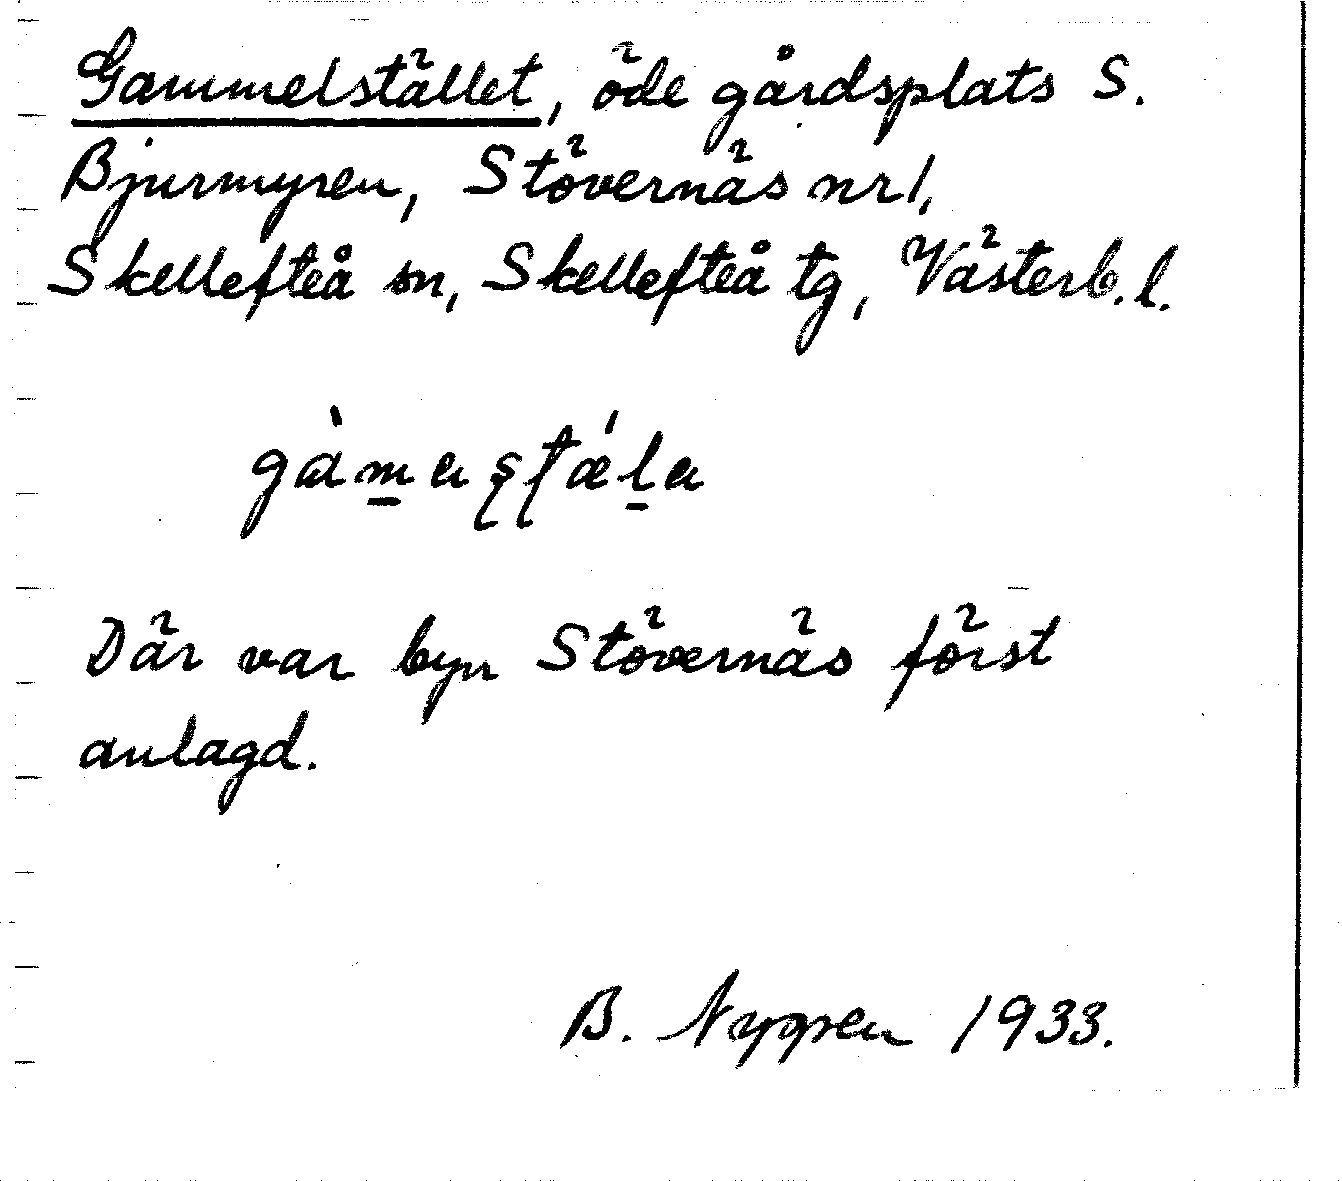 Gammelstället, öde gårdsplats S.
Bjurmyren, Stövernäs nr 1,
Skellefteå sn, Skellefteå tg, Västerb. l.
Där var byn Stövernäs först
anlagd.
B. Nygren 1933.